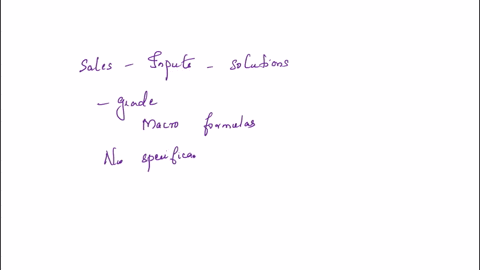 Sales - Inputs - solutions
- grade
Macro formulas
No specifica